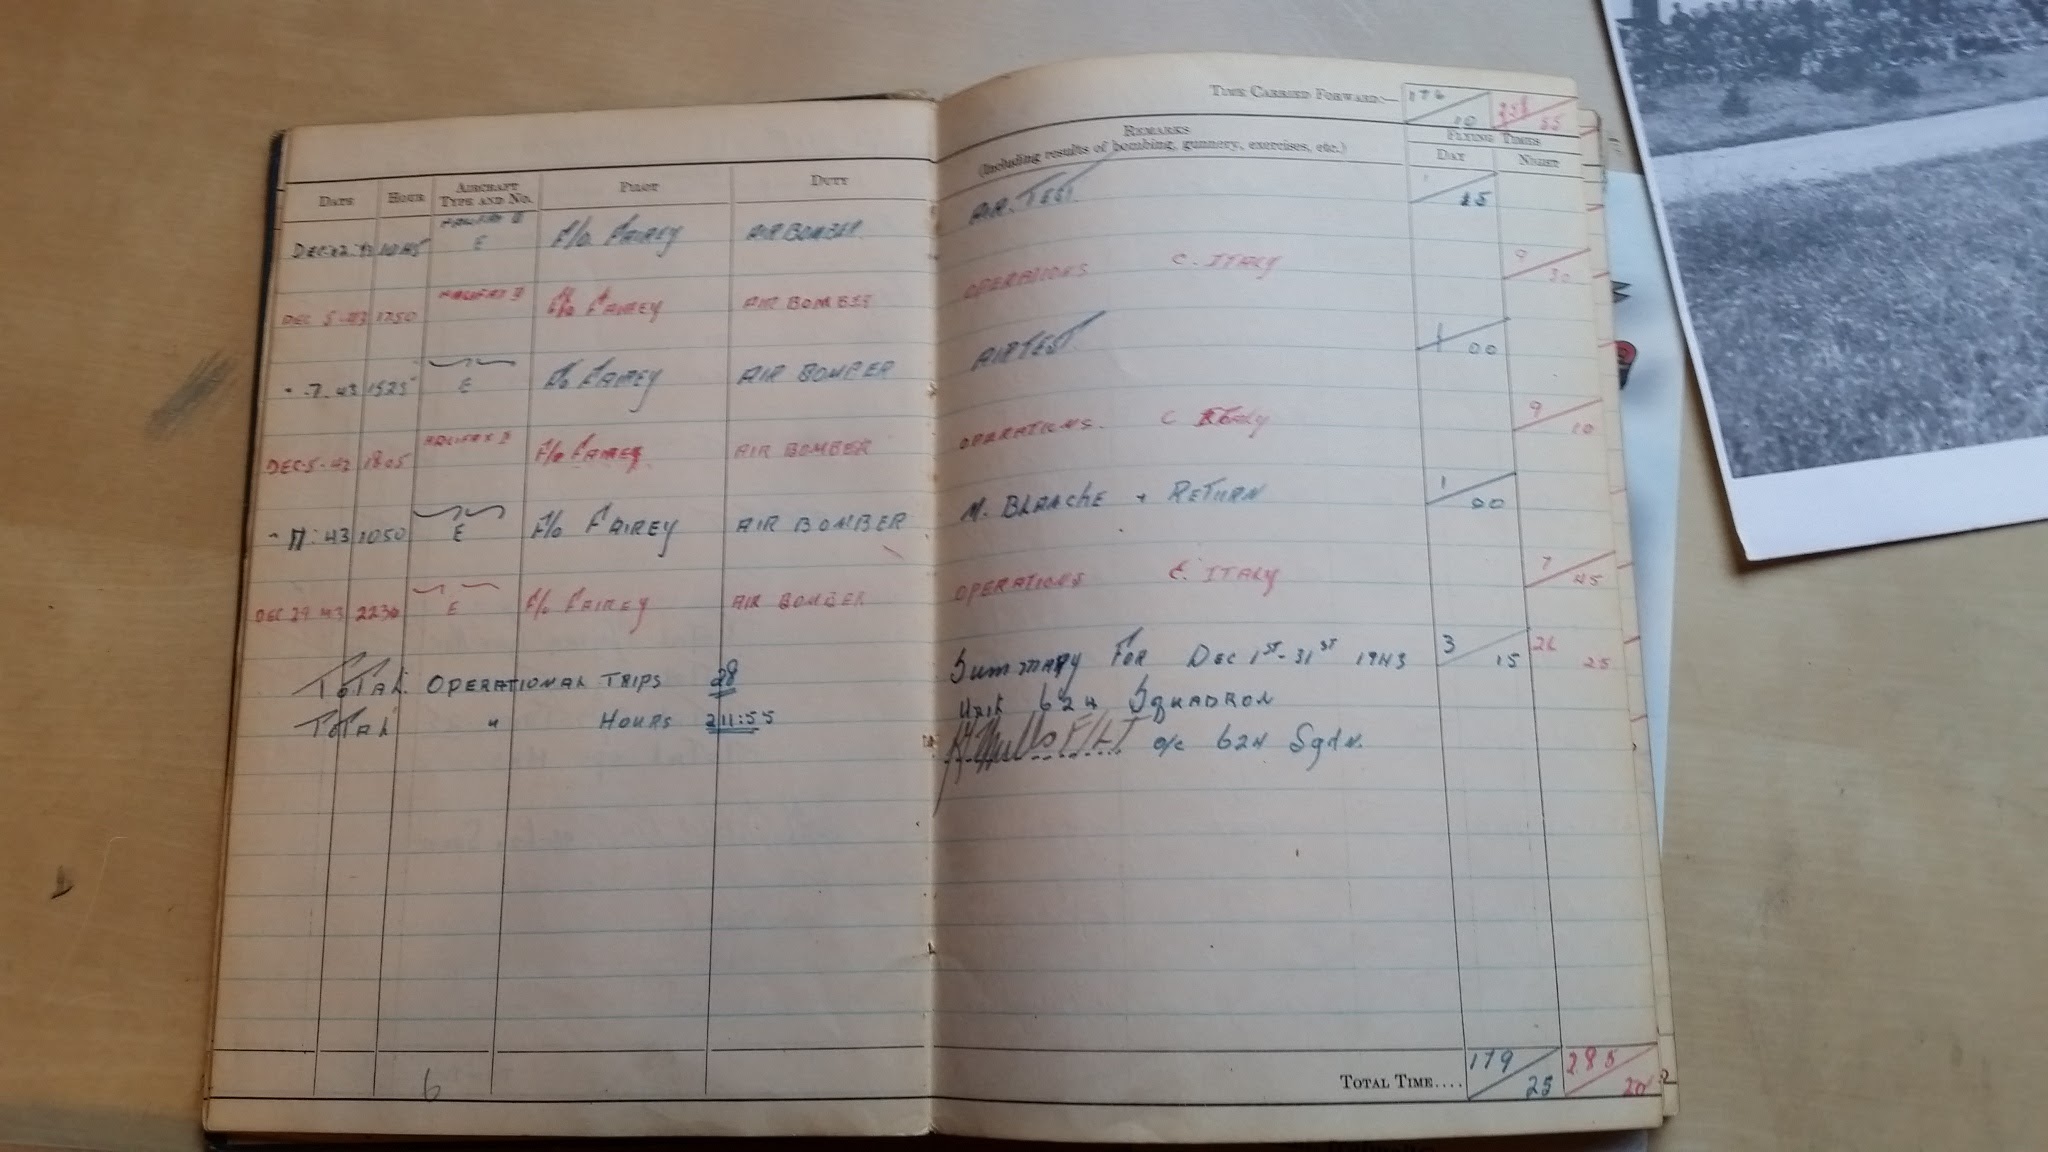 TIME CARRIED FORWARD:— 176 10 258 55
REMARKS
(Including results of bombing, gunnery, exercises, etc.)
FLYING TIMES
DAY NIGHT
DATE HOUR AIRCRAFT TYPE AND NO. PILOT DUTY
HALIFAX II E F/O FAIREY AIR BOMBER AIR. TEST 1 15
DEC 5. 43 1750 HALIFAX II F/O FAIREY AIR BOMBER OPERATIONS C. ITALY 9 30
" .7. 43 1525 E F/O FAIREY AIR BOMBER AIR TEST 1 00
HALIFAX II F/O FAIREY AIR BOMBER OPERATIONS. C ITALY 9 10
43 1050 E F/O FAIREY AIR BOMBER M. BLANCHE + RETURN 1 00
DEC 29 43 2230 E F/O FAIREY AIR BOMBER OPERATIONS ITALY 7 45
TOTAL OPERATIONAL TRIPS 28
TOTAL " HOURS 211:55
Summary For Dec 1ST-31ST 1943 3 15 26 25
Unit 624 SQUADRON
F/LT o/c 624 Sqdn.
TOTAL TIME.... 179 25 285 20
6